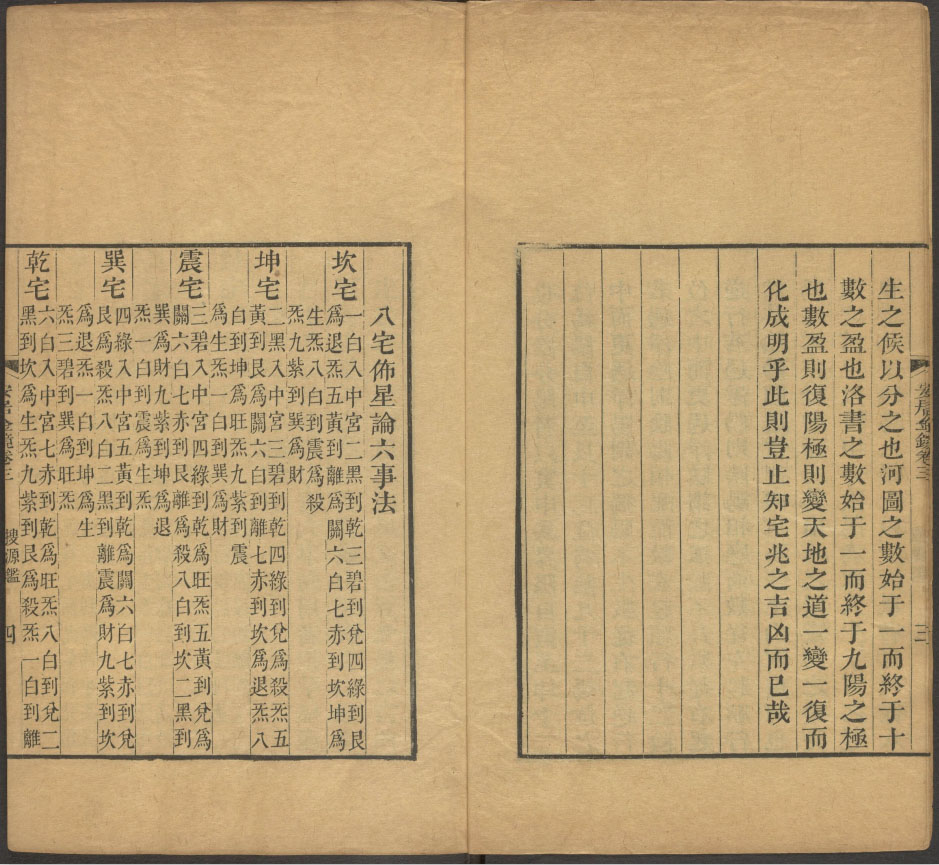 安居金鏡卷三 三
生之候以分之也河圖之數始于一而終于十
數之盈也洛書之數始于一而終于九陽之極
也數盈則復陽極則變天地之道一變一復而
化成明乎此則豈止知宅兆之吉凶而已哉
八宅佈星論六事法
坎宅 一白入中宮二黑到乾三碧到兌四綠到艮
爲退炁五黃到離爲關六白七赤到坎坤爲
生炁八白到震爲殺
炁九紫到巽爲財
坤宅 二黑入中宮三碧到乾四綠到兌爲殺炁五
黃到艮爲關六白到離七赤到坎爲退炁八
白到坤爲旺炁九紫到震
爲生炁一白到巽爲財
震宅 三碧入中宮四綠到乾爲旺炁五黃到兌爲
關六白七赤到艮離爲殺八白到坎二黑到
巽爲財九紫到坤爲退
炁一白到震爲生炁
巽宅 四綠入中宮五黃到乾爲關六白七赤到兌
艮爲殺炁八白二黑到離震爲財九紫到坎
爲退炁一白到坤爲生
炁三碧到巽爲旺炁
乾宅 六白入中宮七赤到乾爲旺炁八白到兌二
黑到坎爲生炁九紫到艮爲殺炁一白到離
安居金鏡卷三 搜源鑑 四